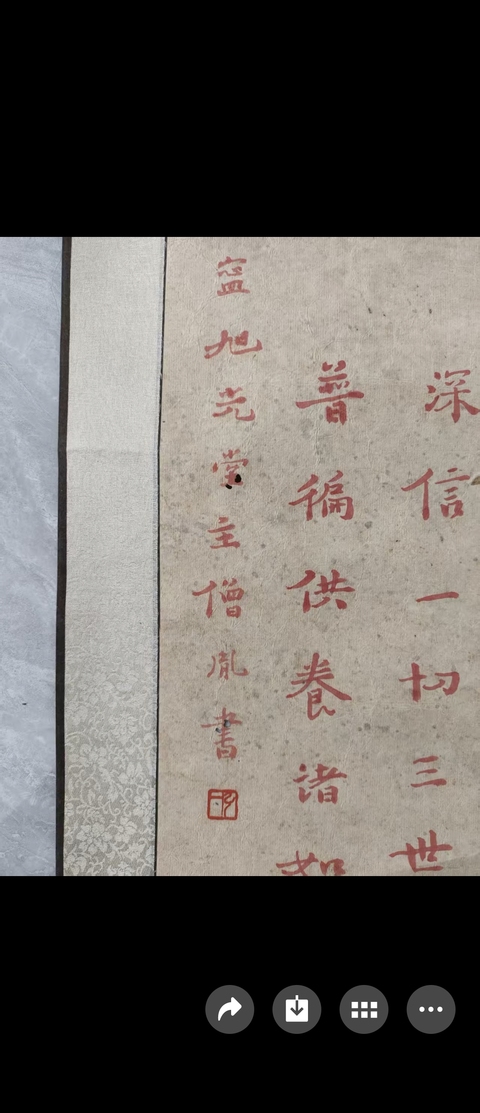 深信一切三世
普徧供養諸如
寍旭光堂主僧胤書